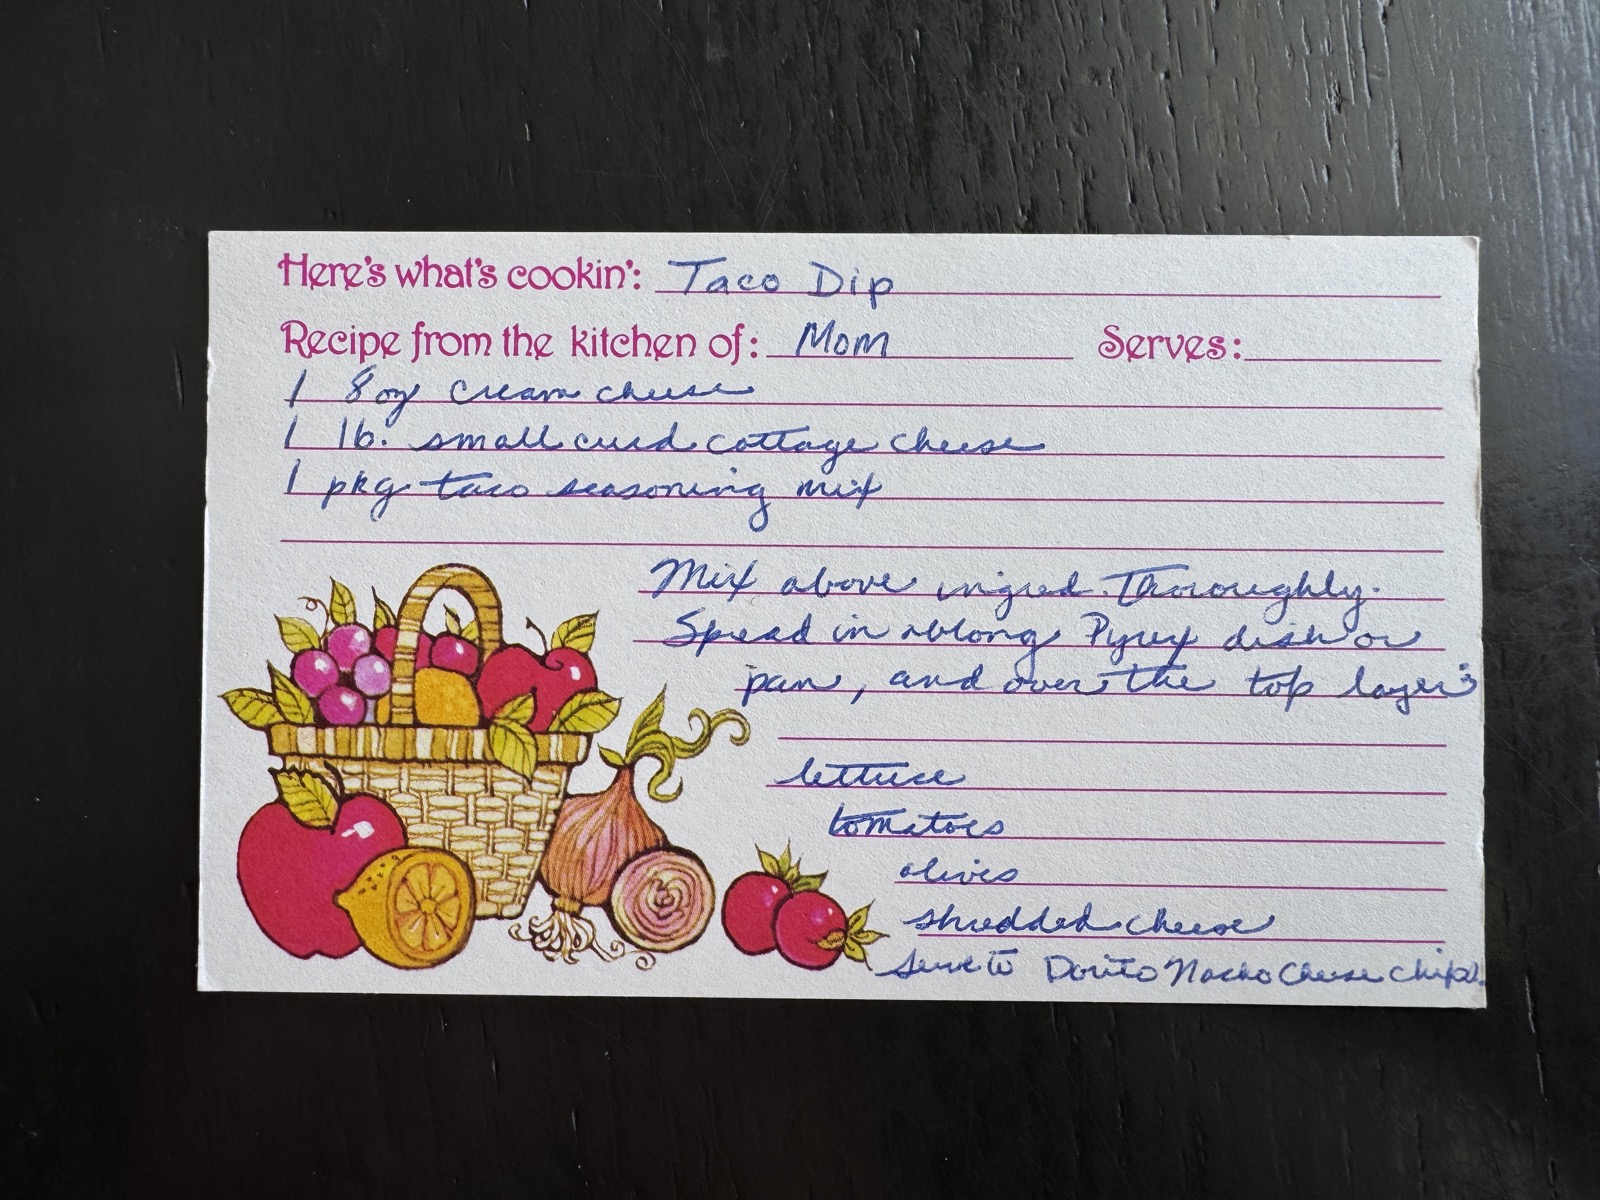 Here's what's cookin': Taco Dip
Recipe from the kitchen of: Mom Serves:
1 8 oz cream cheese
1 lb. small curd cottage cheese
1 pkg taco seasoning mix
Mix above ingred. Thoroughly.
Spread in oblong Pyrex dish or
pan, and over the top layer:
lettuce
tomatoes
olives
shredded cheese
Serve w Dorito Nacho Cheese chips!